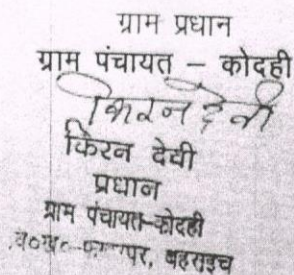 ग्राम प्रधान
ग्राम पंचायत – कोदही
किरन देवी
किरन देवी
प्रधान
ग्राम पंचायत-कोदही
वि०ख०- बहराइच